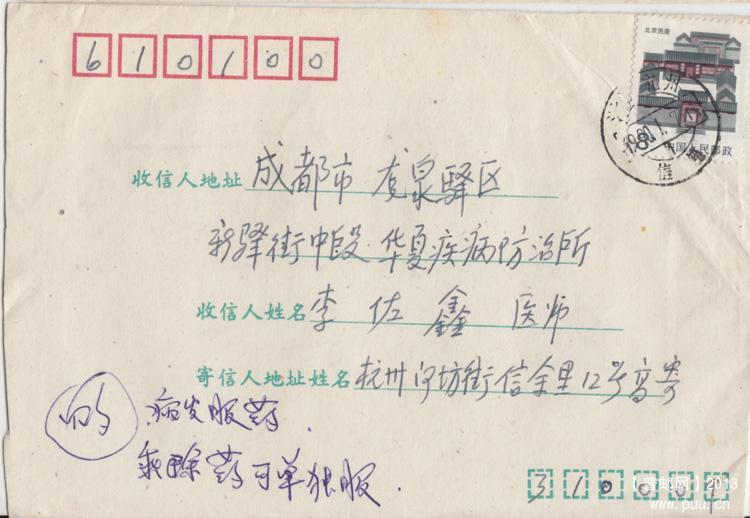 610100
北京民居
中国人民邮政
收信人地址 成都市 龙泉驿区
新驿街中段 华夏疾病防治所
收信人姓名 李佐鑫 医师
寄信人地址姓名 杭州河坊街信余里12号高寄
病发服药.
药可单独服.
310001
【普邮网】2013
www.puu.cn